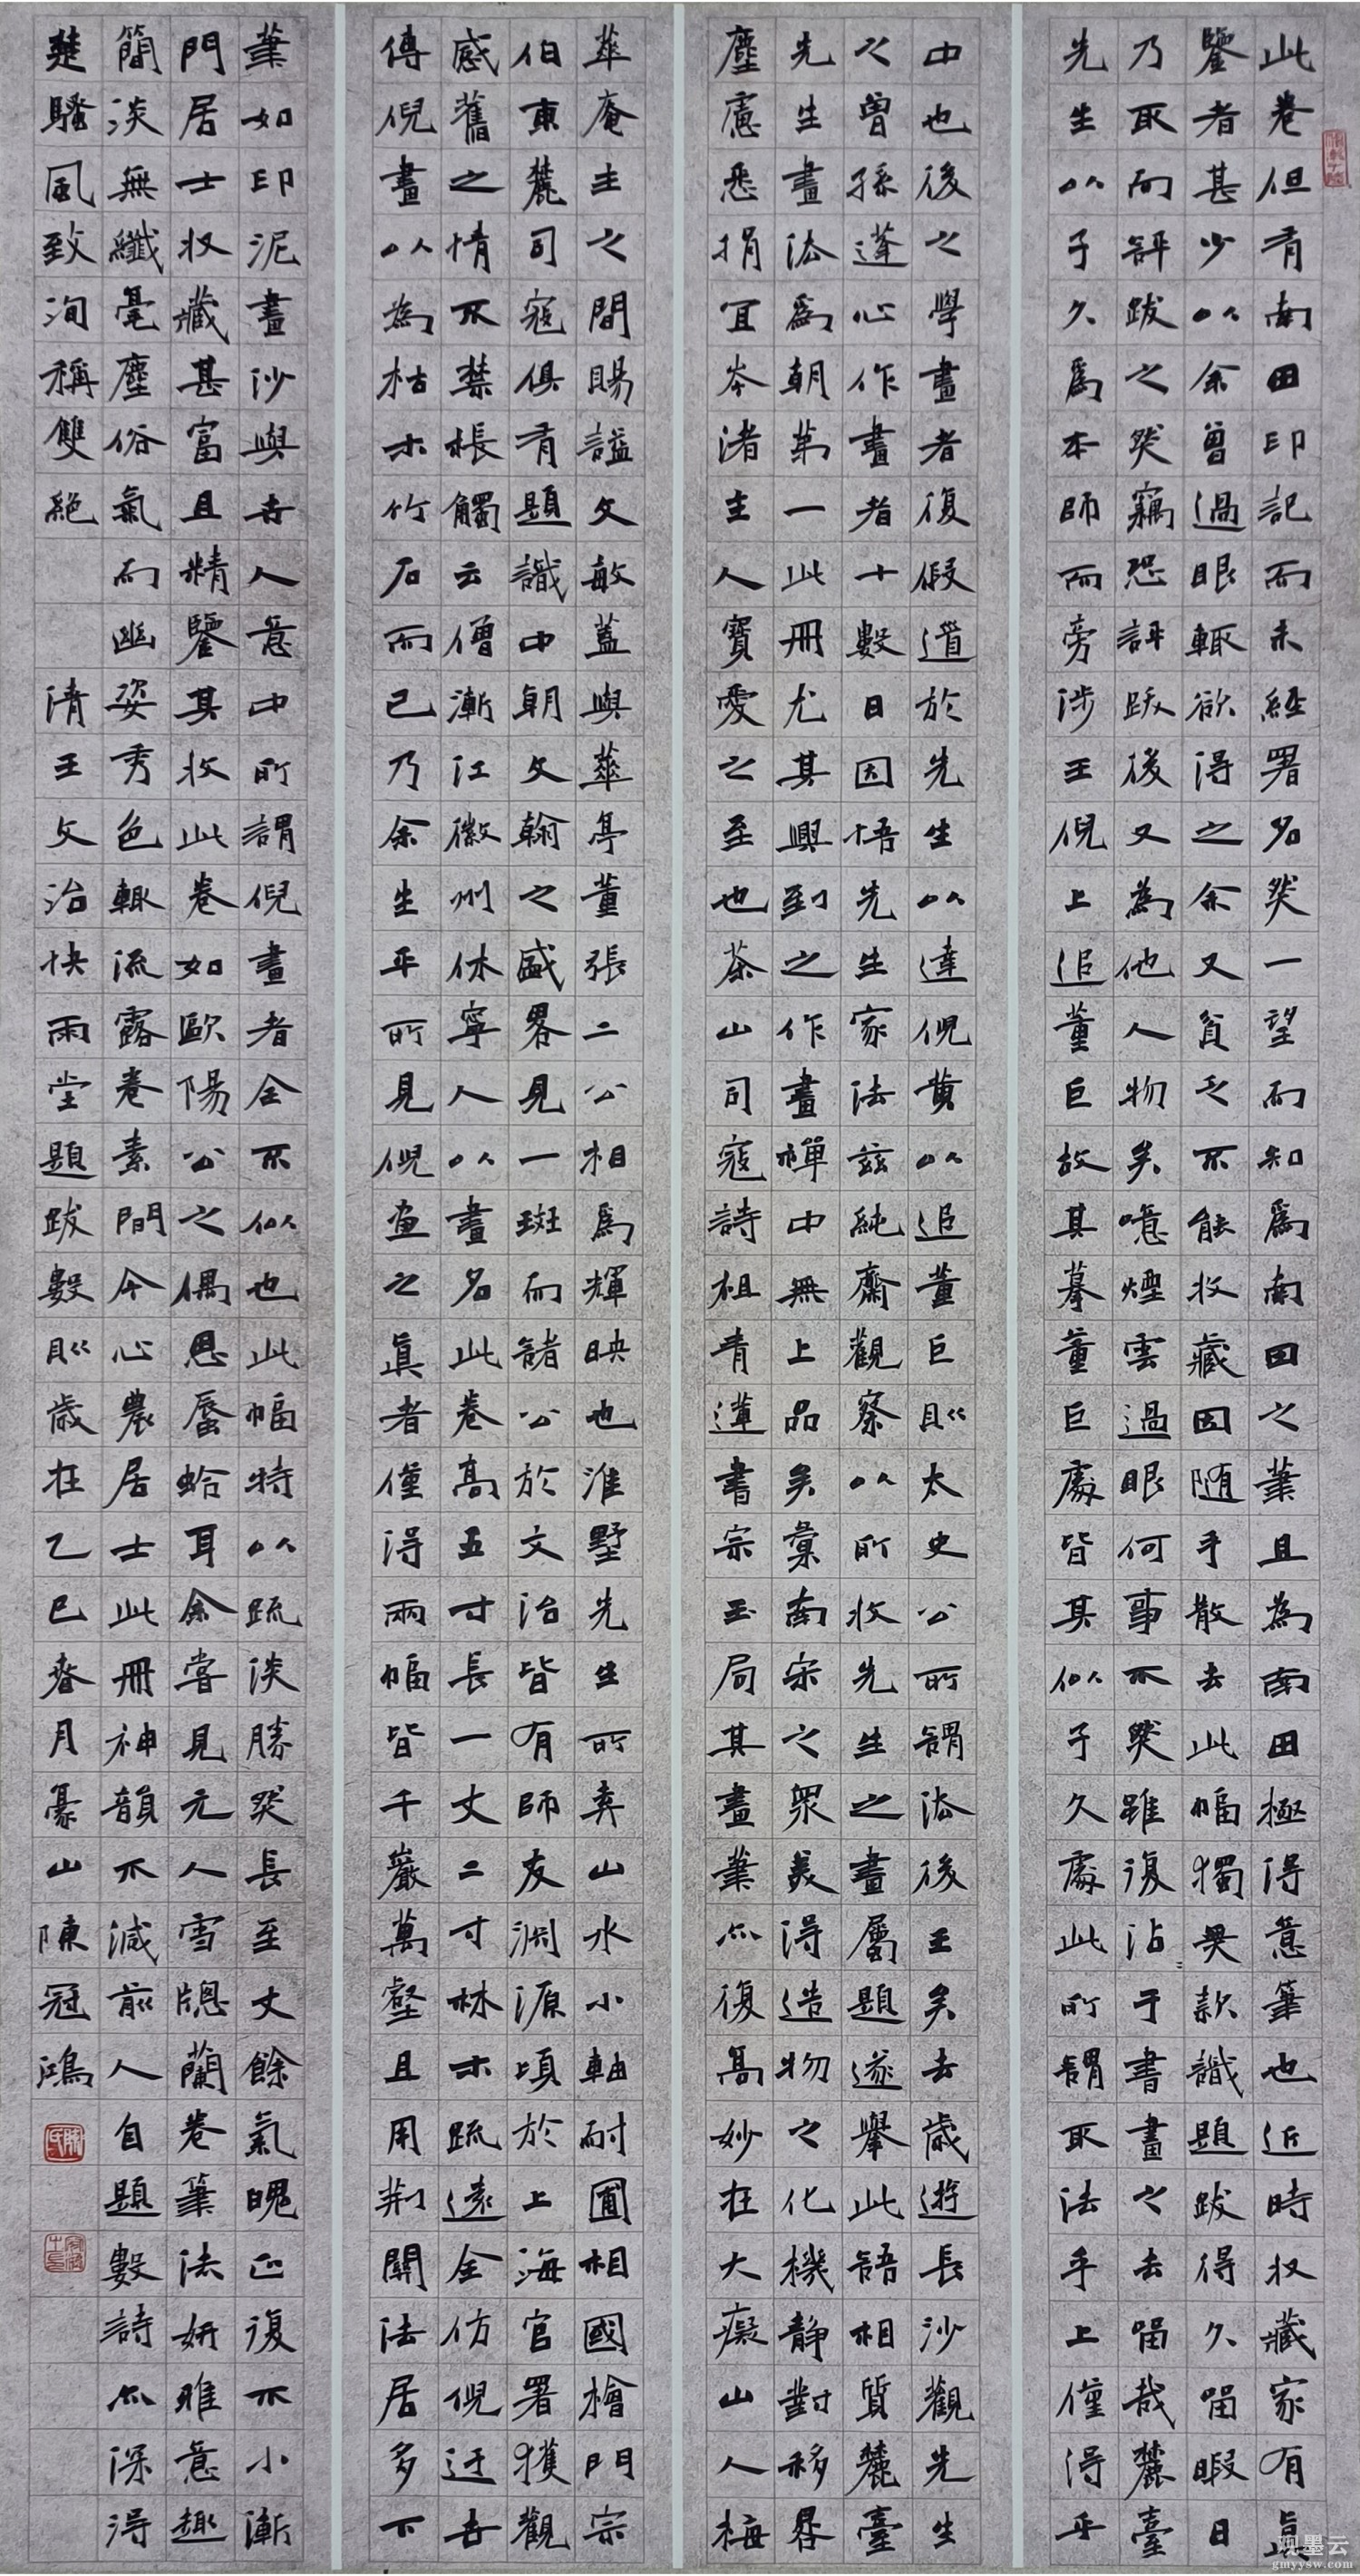 此卷但有南田印記而未經署名然一望而知爲南田之筆且為南田極得意筆也近時收藏家有眞
鑒者甚少以余曾過眼輒欲得之余又貧乏不能收藏因随手散去此幅獨無款識題跋得久留暇日
乃取而評跋之然竊恐評跋後又為他人物矣噫煙雲過眼何事不然雖復沾于書畫之去留哉麓臺
先生以子久爲本師而旁涉王倪上追董巨故其摹董巨處皆其似子久處此所謂取法乎上僅得乎
中也後之學畫者復假道於先生以達倪黄以追董巨則太史公所謂法後王矣去歲遊長沙觀先生
之曾孫蓬心作畫者十數日因悟先生家法兹純齋觀察以所收先生之畫屬題遂舉此語相質麓臺
先生畫法爲朝第一此冊尤其興到之作畫禪中無上品矣彙南宋之衆美得造物之化機静對移晷
塵慮悉捐宜岑渚主人寶愛之至也茶山司寇詩祖青蓮書宗玉局其畫筆亦復高妙在大癡山人梅
華庵主之間賜謚文敏蓋與華亭董張二公相爲輝映也淮墅先生所弆山水小軸耐圃相國檜門宗
伯東麓司寇俱有題識中朝文翰之盛畧見一斑而諸公於文治皆有師友渊源頃於上海官署獲觀
感舊之情不禁棖觸云僧漸江徽州休寧人以畫名此卷高五寸長一丈二寸林木疏遠全仿倪迂古
傳倪畫以為枯木竹石而已乃余生平所見倪画之眞者僅得兩幅皆千巖萬壑且用荆關法居多下
筆如印泥畫沙與古人意中所謂倪畫者全不似也此幅特以疏淡勝然長至丈餘氣魄正復不小漸
門居士收藏甚富且精鑒其收此卷如歐陽公之偶思蜃蛤耳余嘗見元人雪牕蘭卷筆法妍雅意趣
簡淡無纖毫塵俗氣而幽姿秀色輒流露卷素間今心農居士此冊神韻不減前人自題數詩亦深得
楚騷風致洵稱雙絶 清王文治快雨堂題跋數則歲在乙巳春月豪山陳冠鴻
观墨云
gmyysw.com